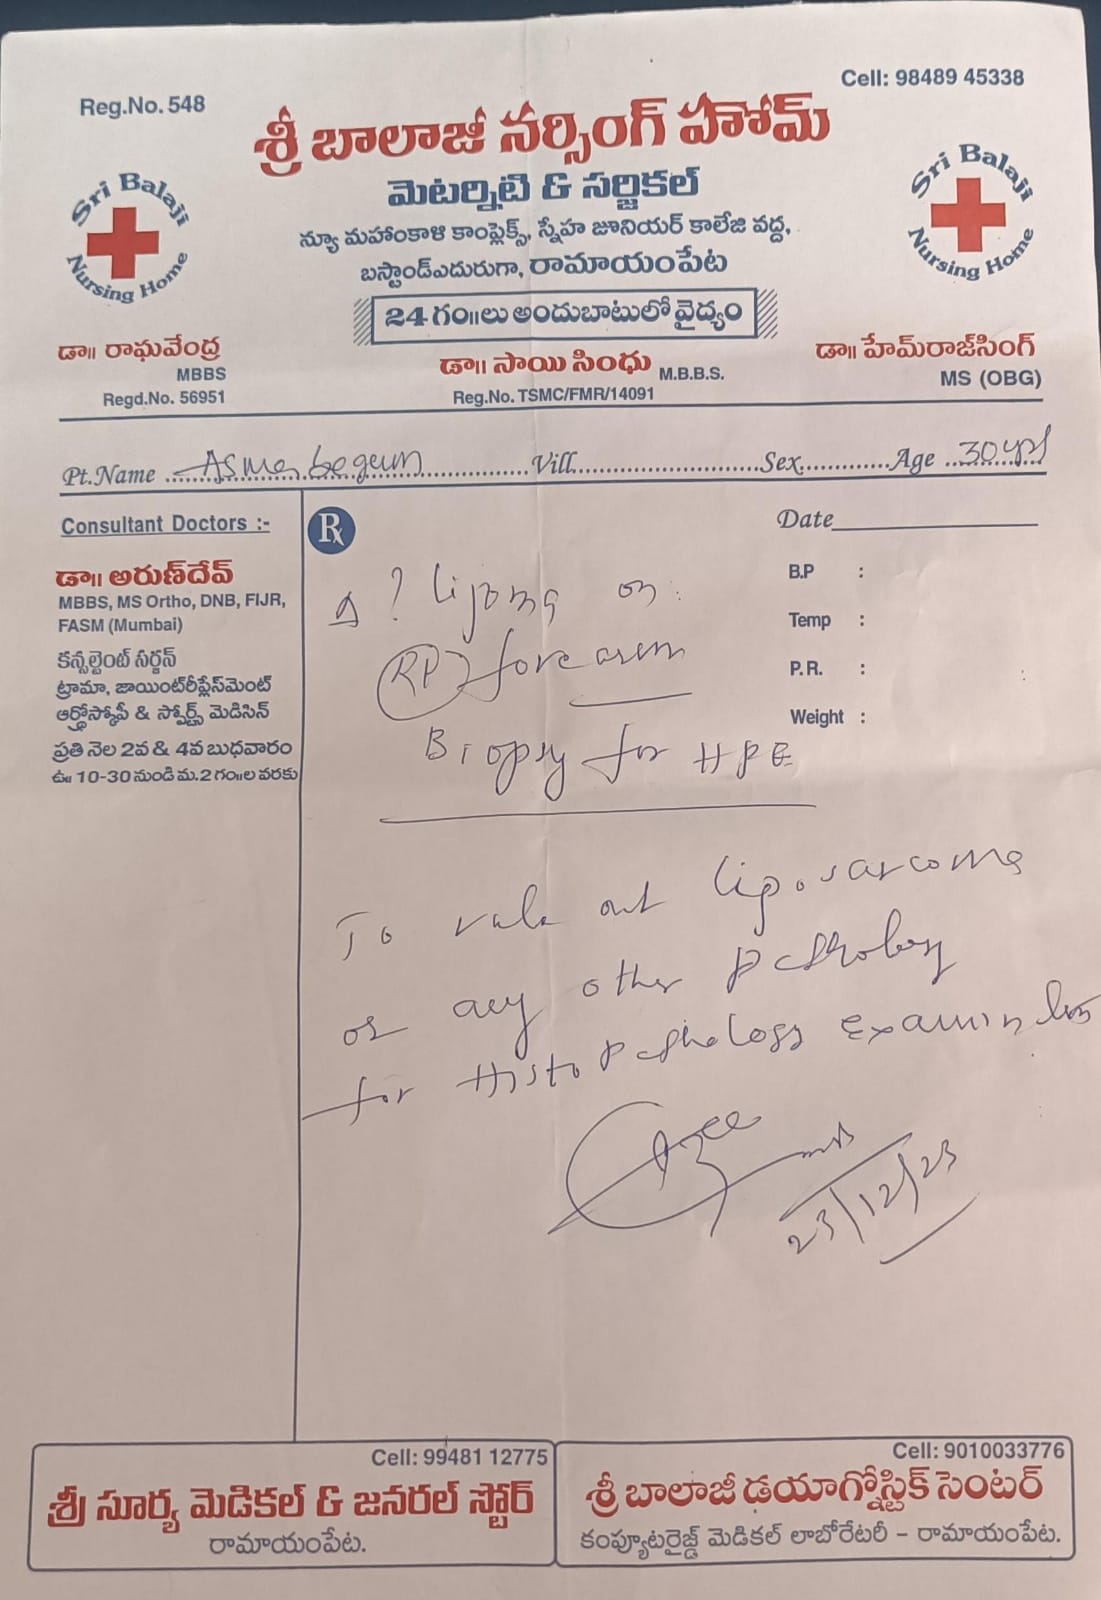 Reg.No. 548
Cell: 98489 45338
శ్రీ బాలాజీ నర్సింగ్ హోమ్
Sri Balaji Nursing Home
మెటర్నిటి & సర్జికల్
Sri Balaji Nursing Home
న్యూ మహంకాళి కాంప్లెక్స్, స్నేహ జూనియర్ కాలేజి వద్ద,
బస్టాండ్ఎదురుగా, రామాయంపేట
24 గం॥లు అందుబాటులో వైద్యం
డా॥ రాఘవేంద్ర
MBBS
Regd.No. 56951
డా॥ సాయి సింధు M.B.B.S.
Reg.No. TSMC/FMR/14091
డా॥ హేమ్‌రాజ్‌సింగ్
MS (OBG)
Pt.Name Asma begum Vill. Sex. Age 30 yrs
Consultant Doctors :-
డా॥ అరుణ్‌దేవ్
MBBS, MS Ortho, DNB, FIJR,
FASM (Mumbai)
కన్సల్టెంట్ సర్జన్
ట్రామా, జాయింట్‌రీప్లేస్‌మెంట్
ఆర్థ్రోస్కోపీ & స్పోర్ట్స్ మెడిసిన్
ప్రతి నెల 2వ & 4వ బుధవారం
ఉ॥ 10-30 నుండి మ.2 గం॥ల వరకు
Rx
Date
B.P :
Temp :
P.R. :
Weight :
Δ ? lipoma on
forearm
Biopsy for HPE
To rule out liposarcoma
or any other pathology
for Histopathology Examination
23/12/23
Cell: 99481 12775
శ్రీ సూర్య మెడికల్ & జనరల్ స్టోర్
రామాయంపేట.
Cell: 9010033776
శ్రీ బాలాజీ డయాగ్నోస్టిక్ సెంటర్
కంప్యూటరైజ్డ్ మెడికల్ లాబోరేటరీ – రామాయంపేట.